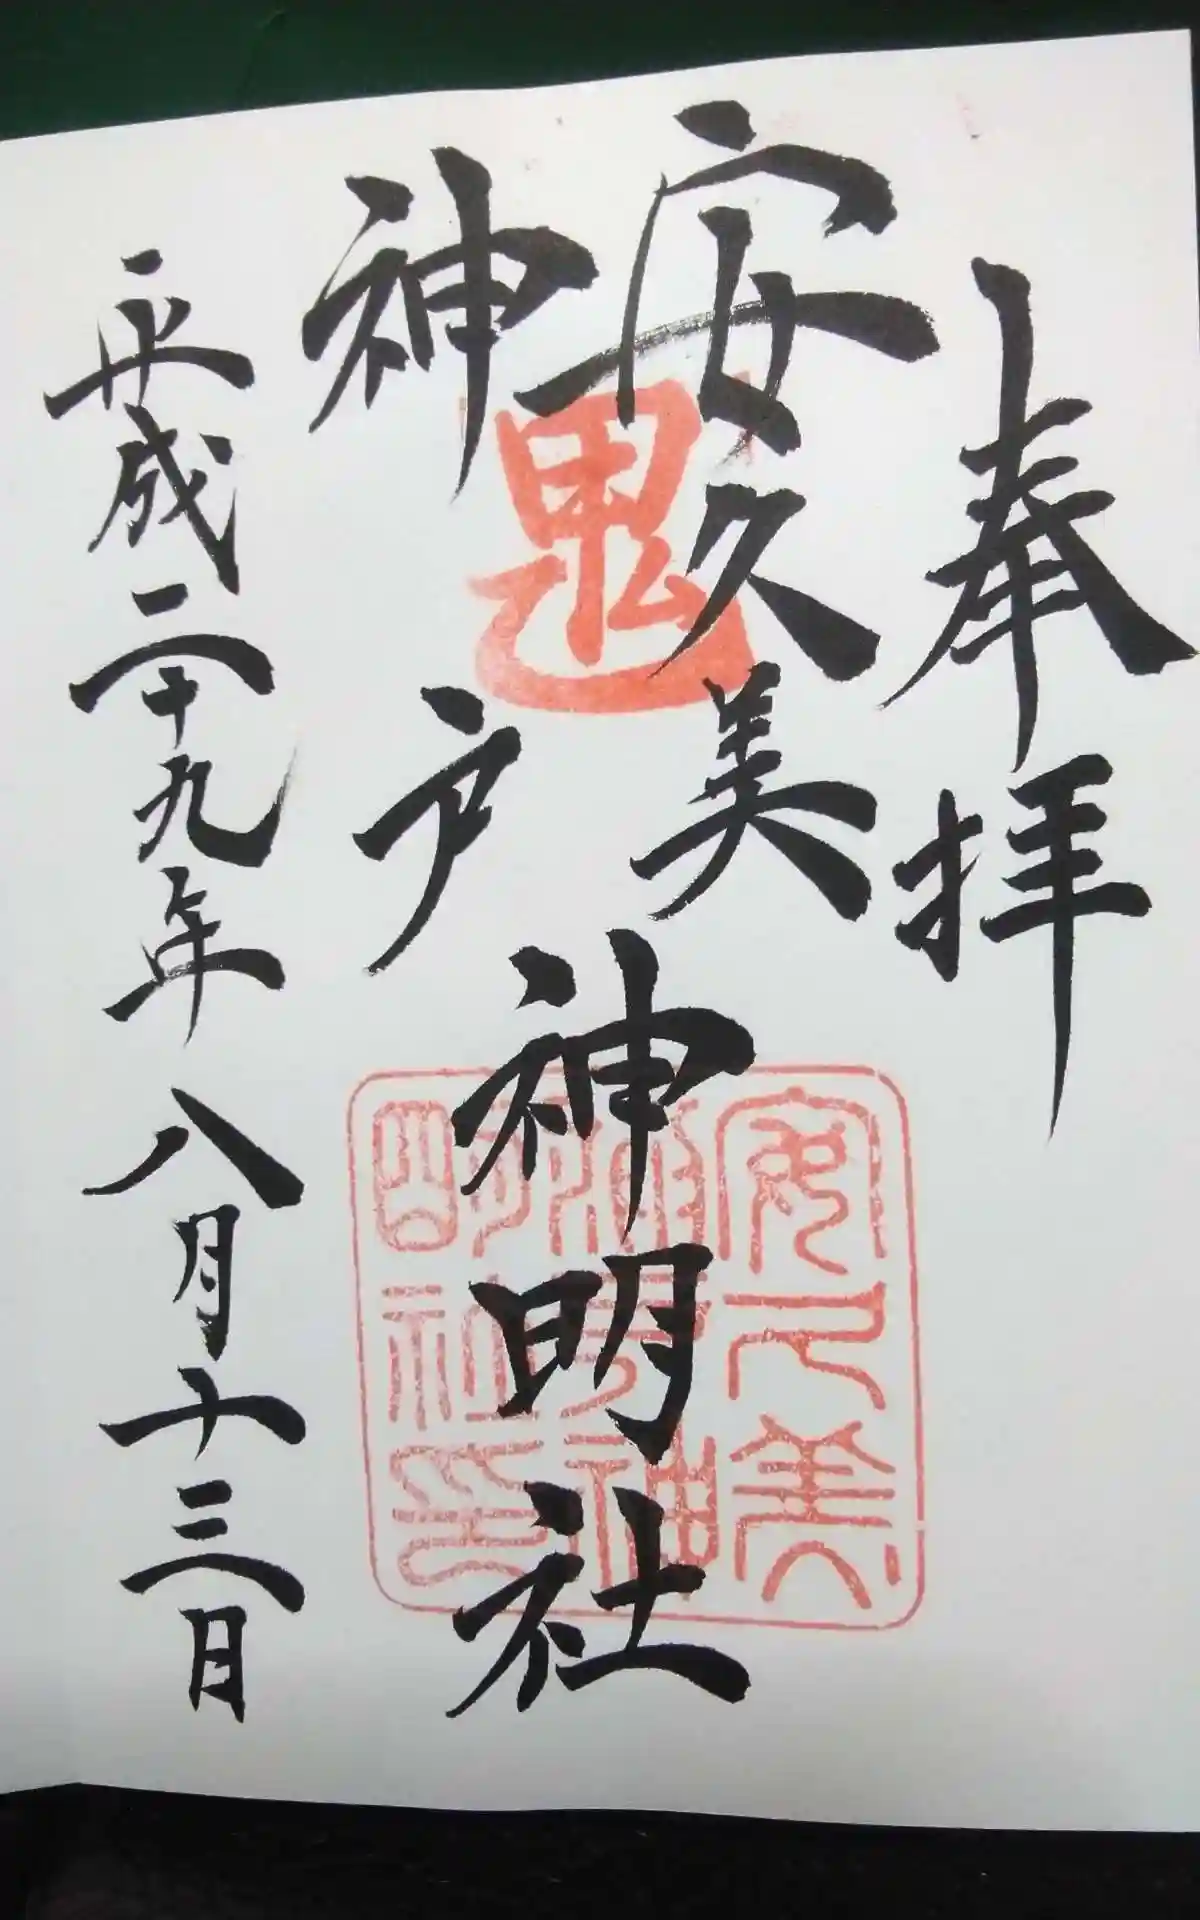 奉拝
安久美
神戸
神明社
平成二十九年八月十三日
鬼
安久美
神戸神
明社印